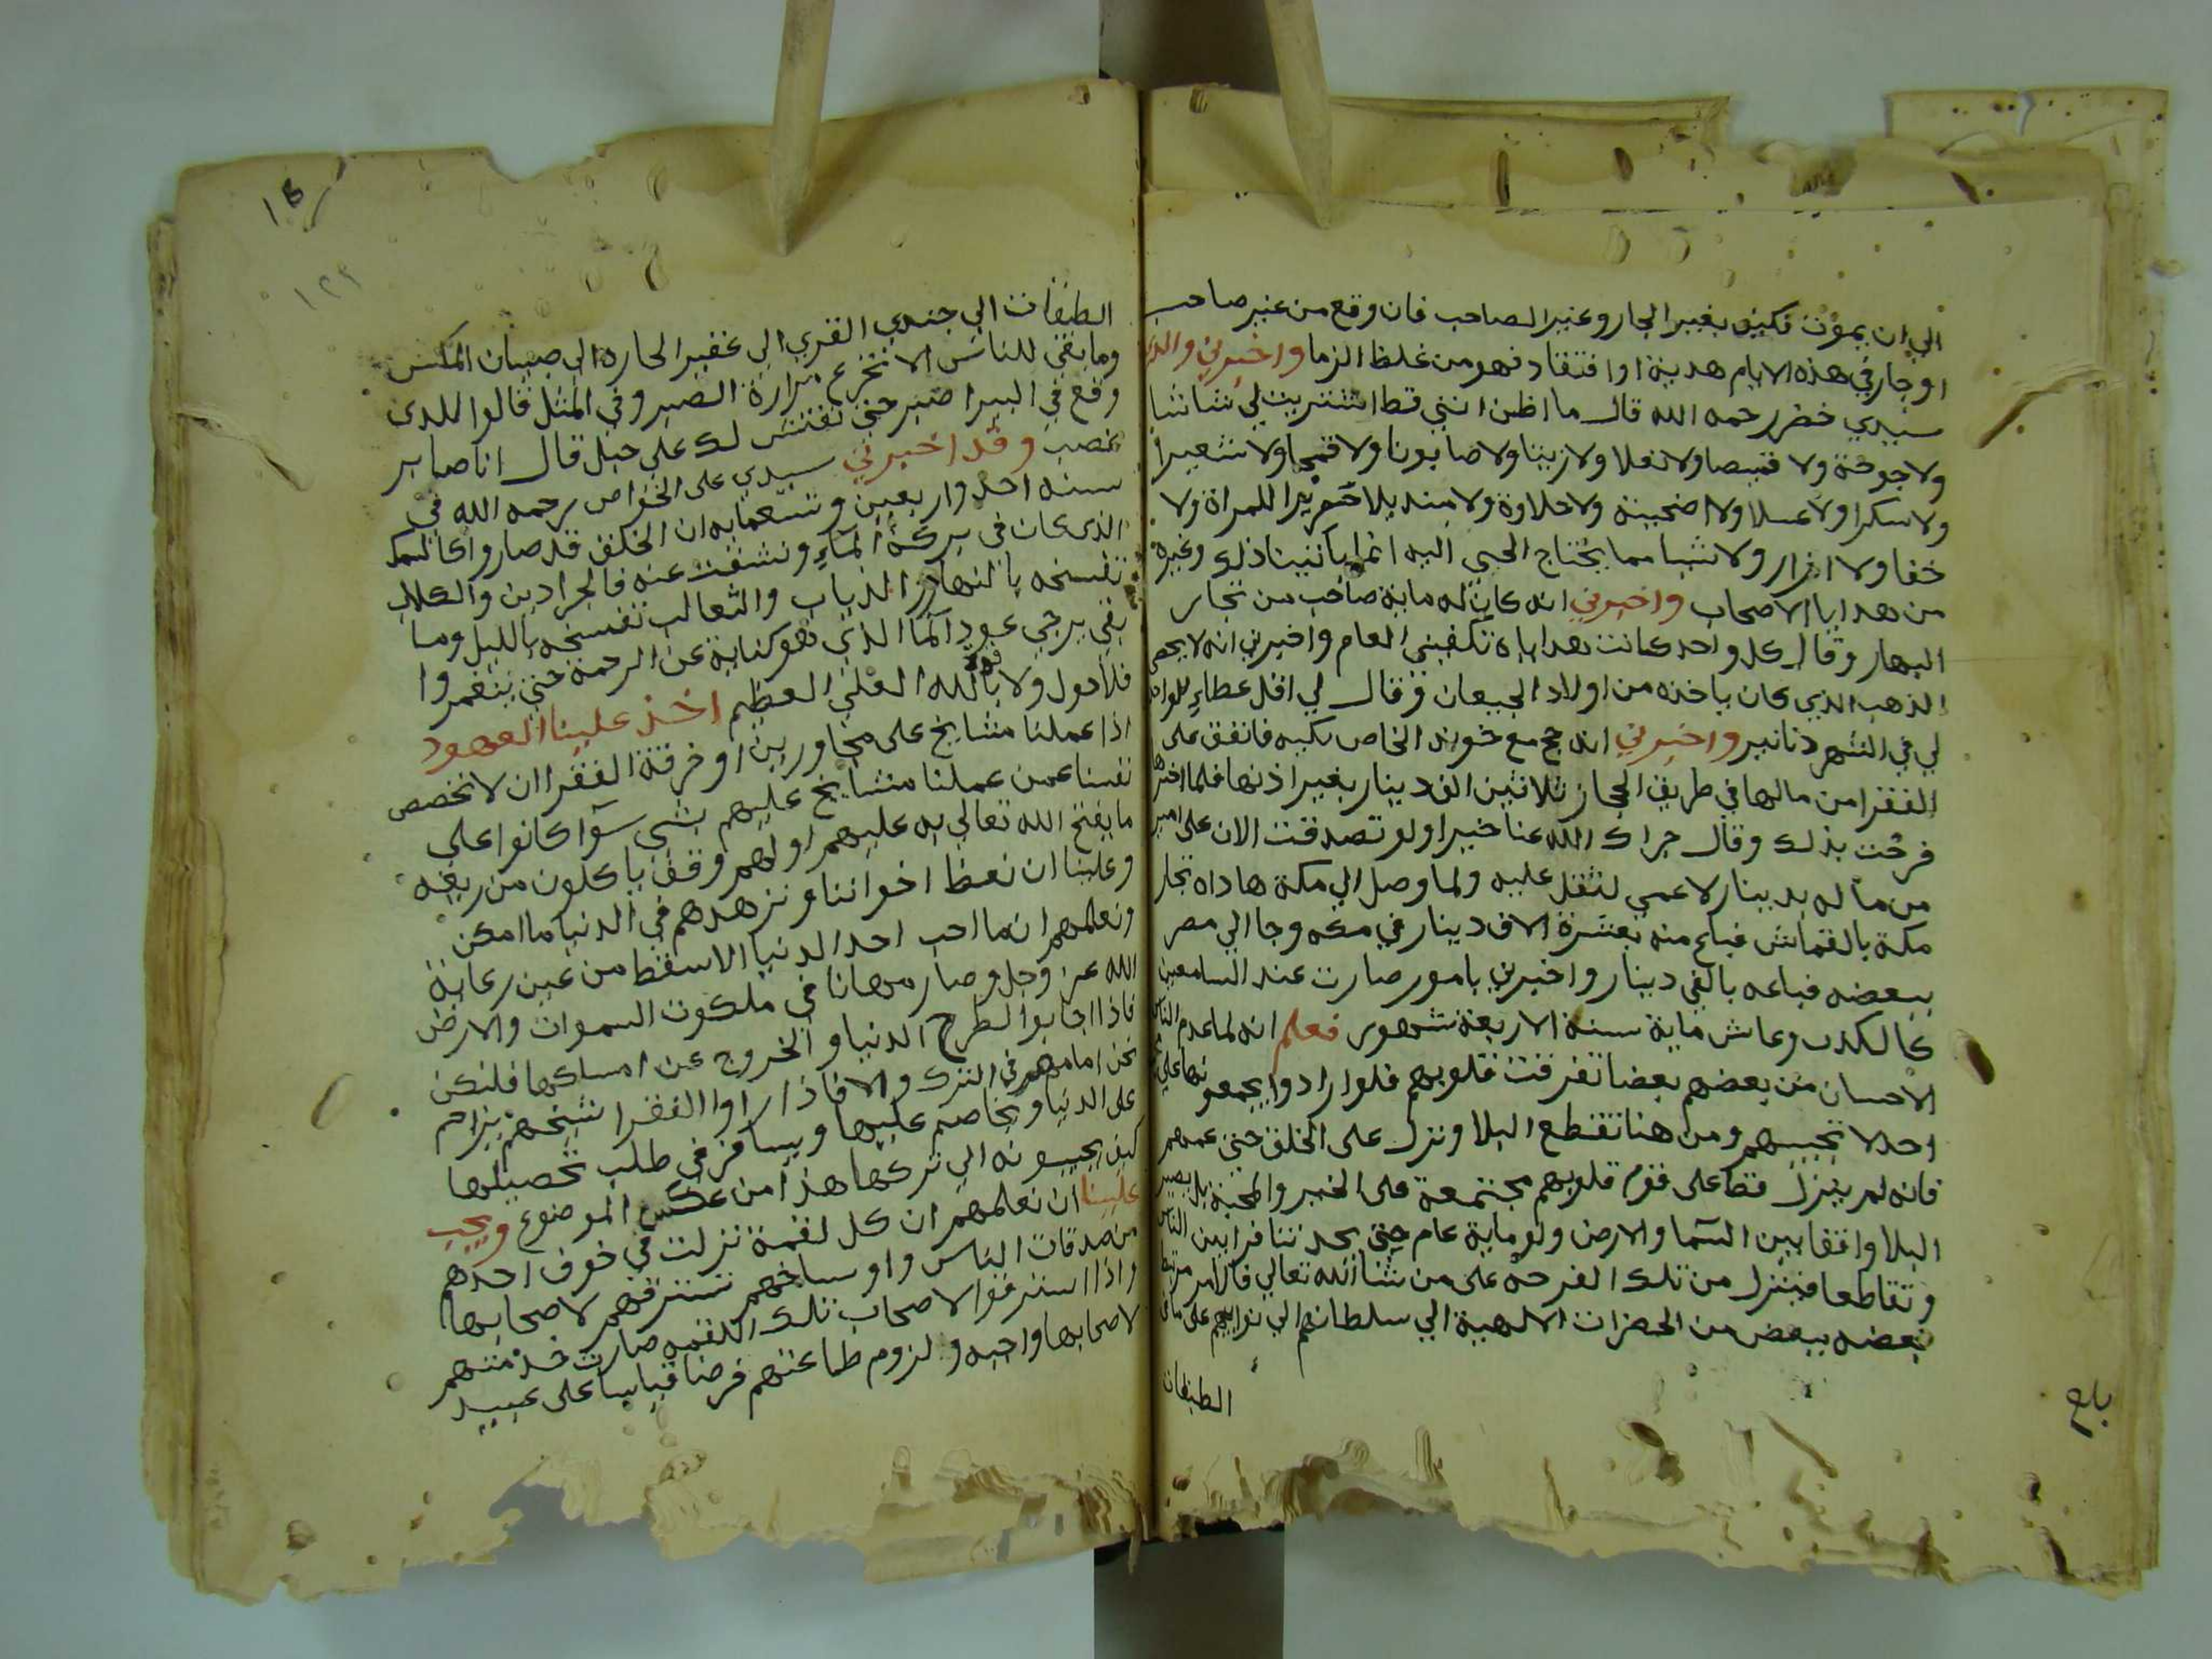 الي ان يموت فكيف بغير الجار وغير الصاحب فان وقع من غير صاحب
او جار في هذه الايام هدية او افتقاد فهو من غلظ الزما واخبرني والدي
سيدي خضر رحمه الله قال ما اظن انني قط اشتريت لي شاشا
ولا جوخة ولا قميصا ولا نعلا ولا زيتا ولا صابونا ولا قمحا ولا شعيرا
ولا سكرا ولا عسلا ولا اضحية ولا حلاوة ولا منديلا حريرا للمراة ولا
خفا ولا ازار ولا شيا مما يحتاج الحي اليه انما ياتينا ذلك وغيره
من هدايا الاصحاب واخبرني انه كان له ماية صاحب من تجار
البهار وقال كل واحد كانت هداياه تكفيني العام واخبرني انه لا يحصي
الذهب الذي كان ياخذه من اولاد الجيعان وقال لي اقل عطاء للواحد
لي في الشهر دنانير واخبرني انه حج مع خوند الخاص بكيه فانفق على
الفقرا من مالها في طريق الحجاز ثلاثين الف دينار بغير اذنها فلما اخبرها
فرحت بذلك وقال جزاك الله عنا خيرا ولو تصدقت الان على امير
من ماله بدينار لا عمي لثقل عليه ولما وصل الي مكة هاداه تجار
مكة بالقماش فباع منه بعشرة الاف دينار في مكه وجا الي مصر
ببعضه فباعه بالفي دينار واخبرني بامور صارت عند السامعين
كالكذب وعاش ماية سنة الاربعة شهور فعلم انه لما عدم الناس
الاحسان من بعضهم بعضا تفرقت قلوبهم فلو ارادوا يجمعونها على
احد لا تجيبهم ومن هنا تقطع البلا ونزل على الخلق حتى عمهم
فانه لم ينزل قط على قوم قلوبهم مجتمعة على الخير والمحبة بل يصير
البلا واقفا بين السما والارض ولو ماية عام حتى يجد تنافرا بين الناس
وتقاطعا فينزل من تلك الفرجة على من شا الله تعالي فالامر مرتبط
بعضه ببعض من الحضرات الالهية الي سلطانهم الي نوابهم على
الطبقات
بلغ
١٢٢
الطبقات الي جندي القري الي غفير الحاره الي صبيان المكس
وما بقي للناس الا تجرع مرارة الصبر وفي المثل قالوا للدي
وقع في البير اصبر حتى نفتش لك على حبل قال انا صابر
غصب وقد اخبرني سيدي على الخواص رحمه الله في
سنه احد واربعين وتسعمايه ان الخلق قد صاروا كالسمك
الذي كان في بركة الماء ونشفت عنه فالجرادين والكلاب
تفسخه بالنهار والذياب والثعالب تفسخه بالليل وما
بقي يرجي عود الما الذي هو كناية عن الرحمة حتى ينغمروا
فلا حول ولا قوة بالله العلي العظيم اخذ علينا العهود
اذا عملنا مشايخ على مجاورين او خرقة الفقرا ان لا نخصص
نفسنا عمن عملنا مشايخ عليهم بشي سوآ كانوا على
ما يفتح الله تعالي به عليهم او لهم وقف ياكلون من ريعه
وعلينا ان نعظ اخواننا ونزهدهم في الدنيا ما امكن
ونعلمهم انه ما احب احد الدنيا الا سقط من عين رعاية
الله عز وجل وصار مهانا في ملكوت السموات والارض
فاذا اجابوا لطرح الدنيا والخروج عن امساكها فلنكن
نحن امامهم في الترك والا فاذا راوا الفقرا شيخهم يزاحم
على الدنيا ويخاصم عليها ويسافر في طلب تحصيلها
كيف يجيبونه الي تركها هذا من عكس الموضوع ويجب
علينا ان نعلمهم ان كل لقمة نزلت في جوف احدهم
من صدقات الناس واوساخهم تسترقهم لاصحابها
واذا استرقوا لاصحاب تلك اللقمه صارت خدمتهم
لاصحابها واجبه ولزوم طاعتهم فرضا قياسا على عبيد